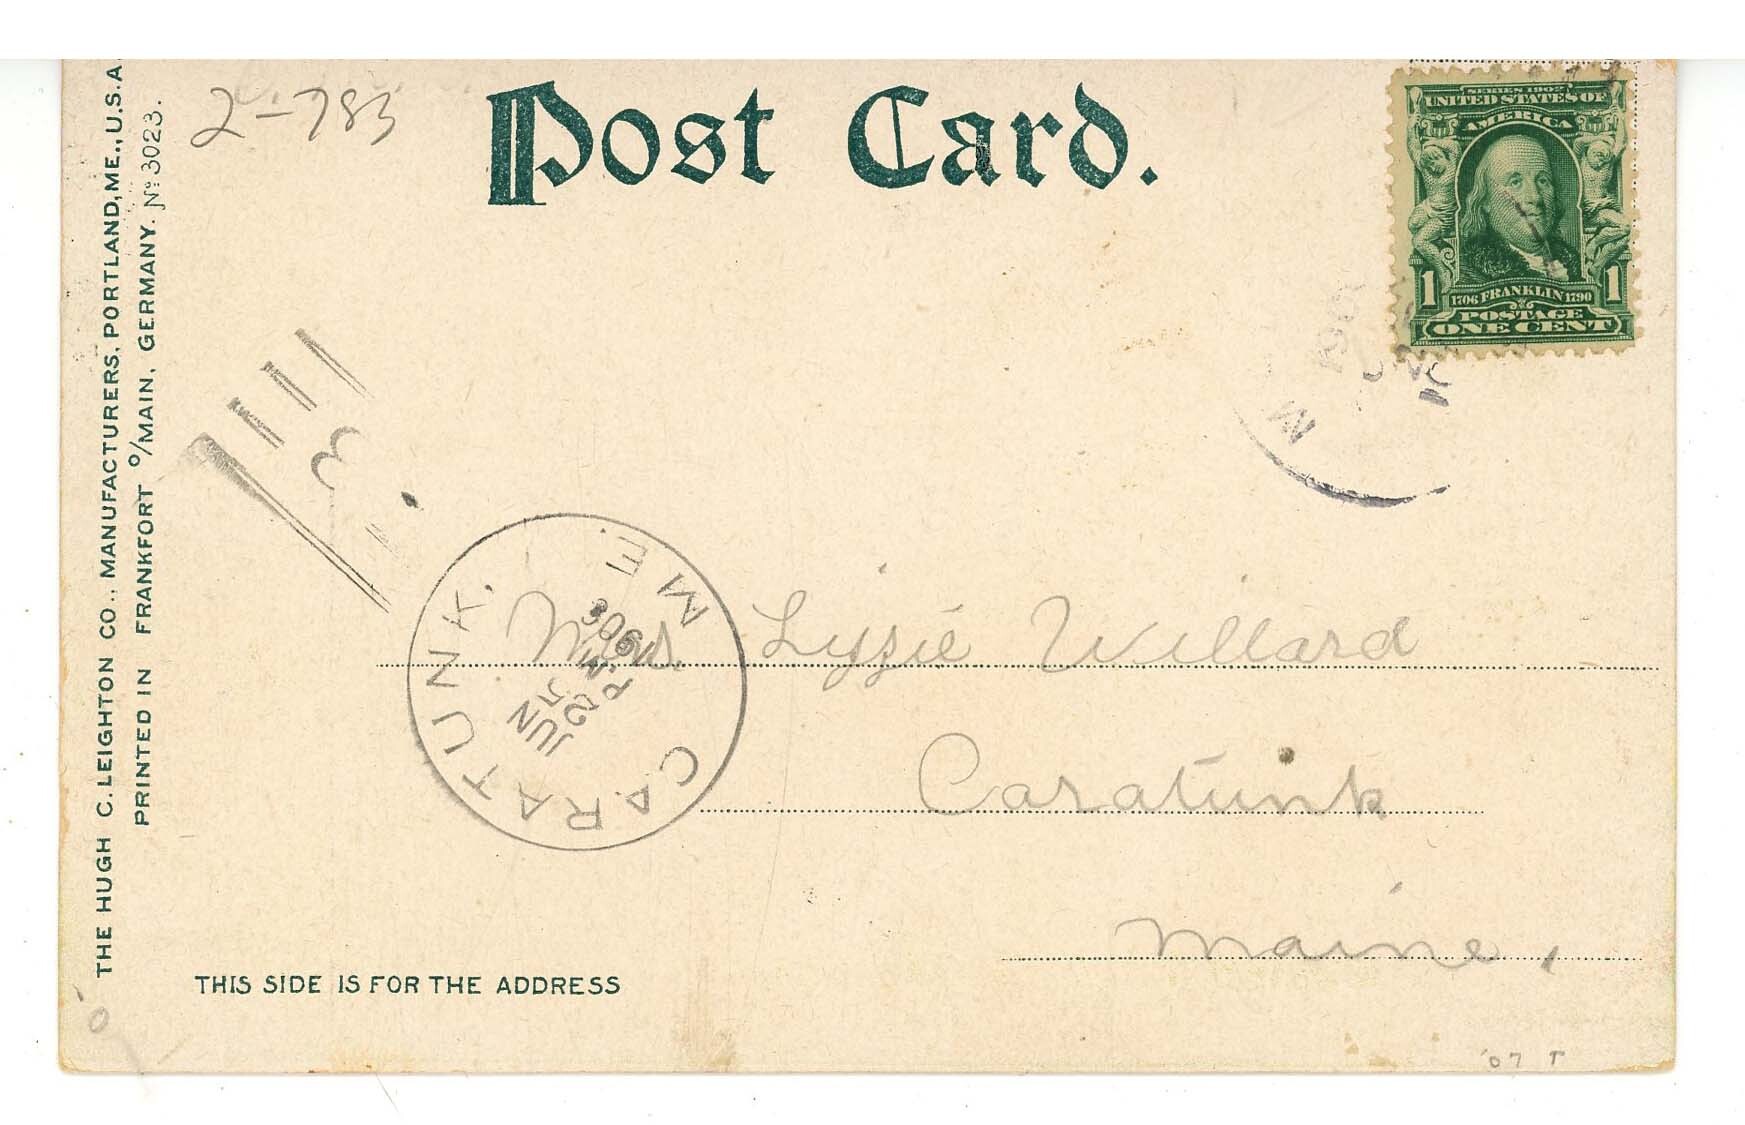 THE HUGH C. LEIGHTON CO., MANUFACTURERS, PORTLAND, ME., U.S.A.
PRINTED IN FRANKFORT O/MAIN, GERMANY. No 3023.
2-783
Post Card.
SERIES 1902
UNITED STATES OF
AMERICA
1 1
1706 FRANKLIN 1790
POSTAGE
ONE CENT
3
CARATUNK, ME.
JUN
P.M
190
Mrs Lyzzie Willard
Caratunk
Maine,
THIS SIDE IS FOR THE ADDRESS
'07 T